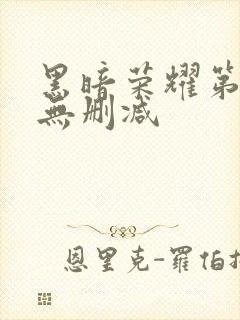 黑暗荣耀第
無删减
恩里克-羅伯